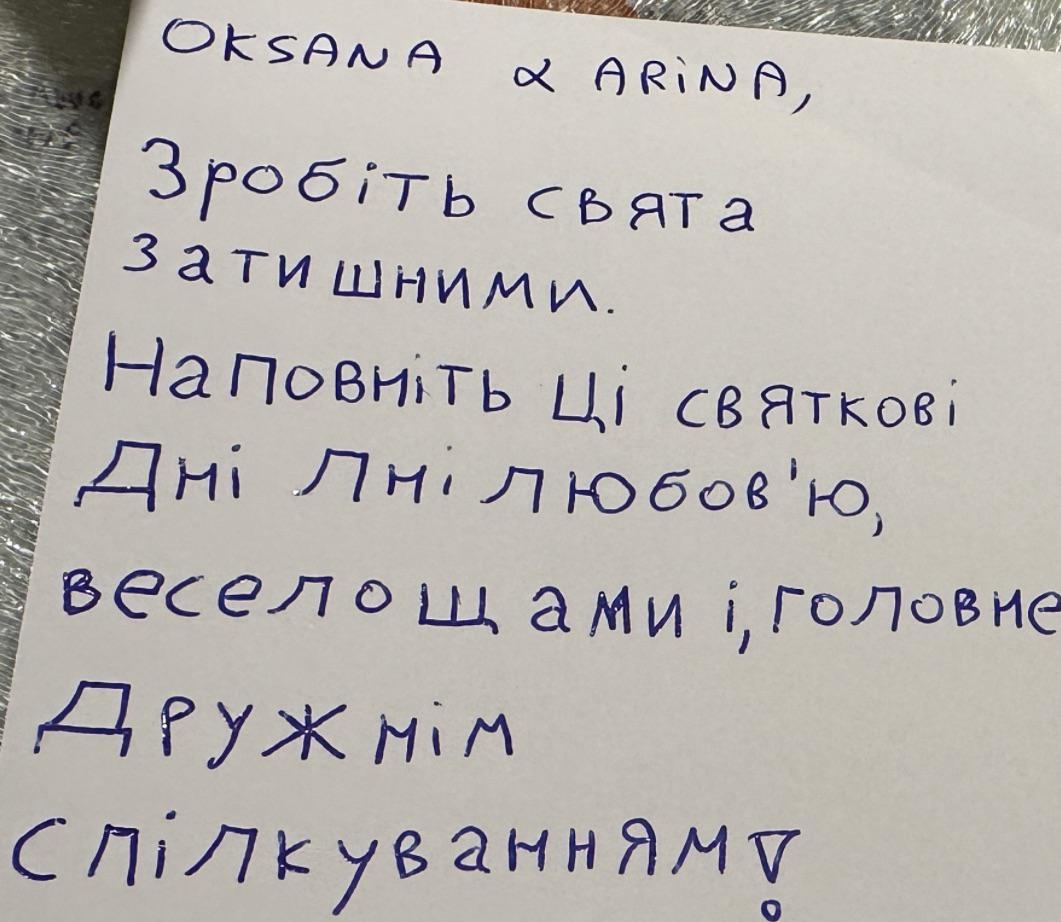 OKSANA & ARINA,
Зробіть свята
затишними.
Наповніть ці святкові
Дні Лні любов'ю,
веселощами і, головне
Дружнім
спілкуванням!